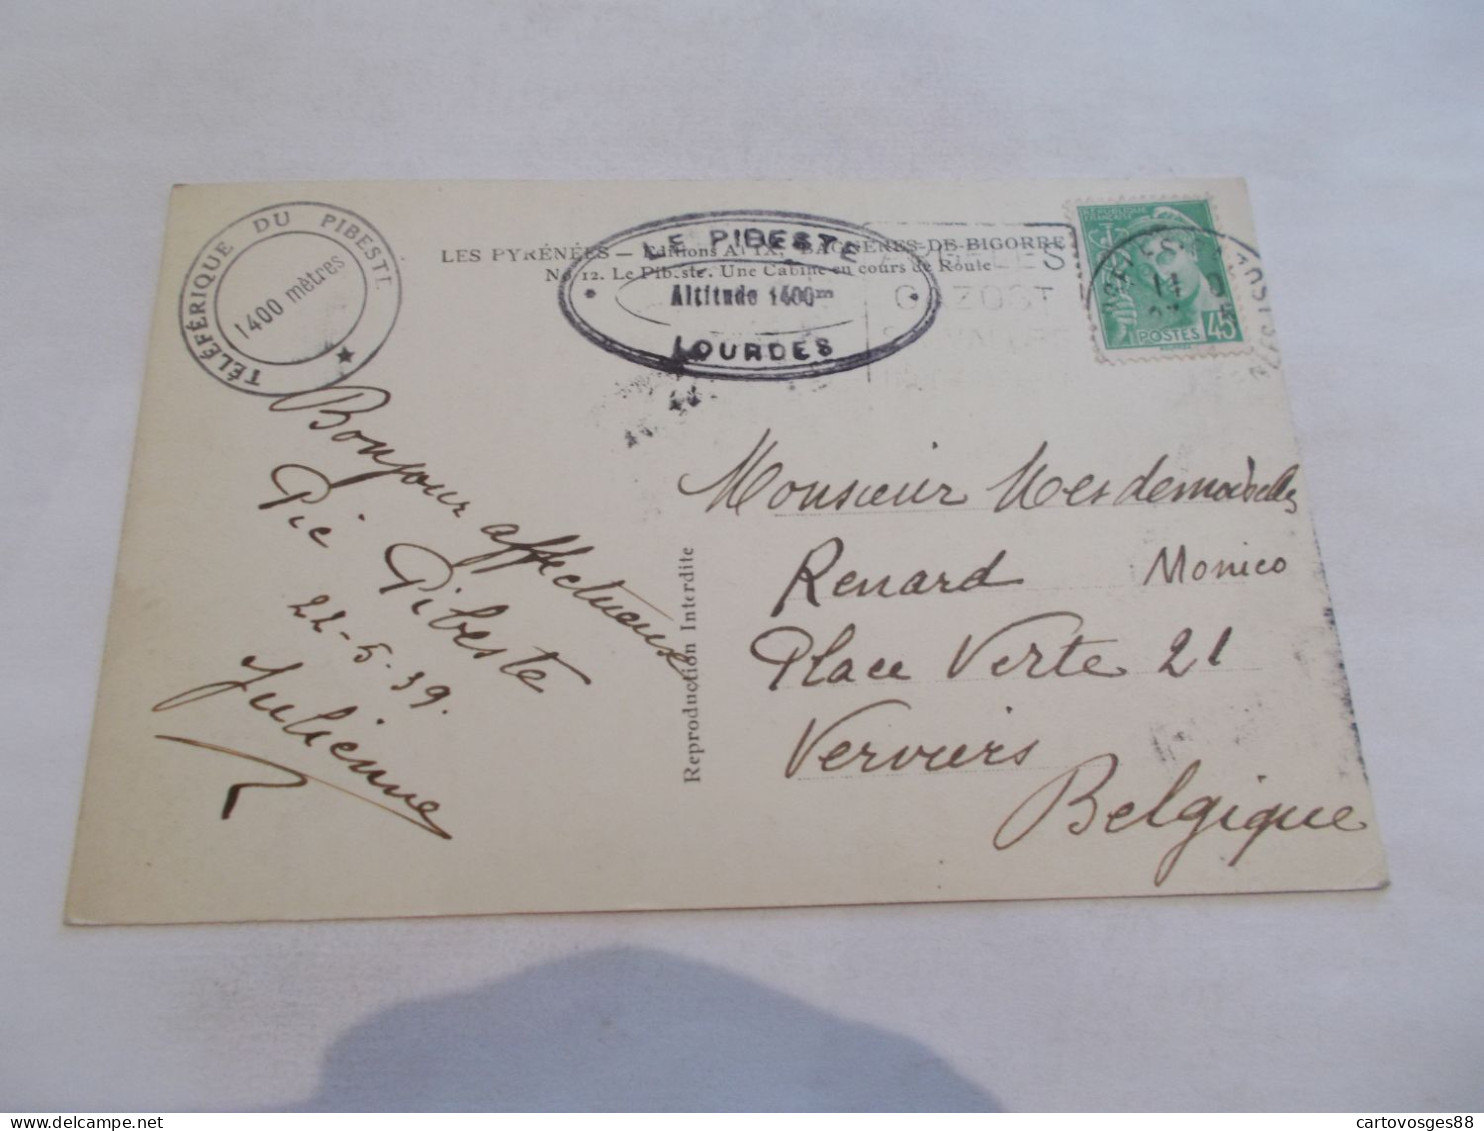 TÉLÉFÉRIQUE DU PIBESTE
1400 mètres
LES PYRÉNÉES — Editions APIX, BAGNÈRES-DE-BIGORRE
No 12. Le Pibeste. Une Cabine en cours de Route
LE PIBESTE
Altitude 1400m
LOURDES
GAZOST
RÉPUBLIQUE FRANÇAISE
POSTES 45c
Bonjour affectueux
Pic Pibeste
22-5-39.
Julienne
Reproduction Interdite
Monsieur Mesdemoiselles
Renard Monico
Place Verte 21
Verviers
Belgique
cartovosges88